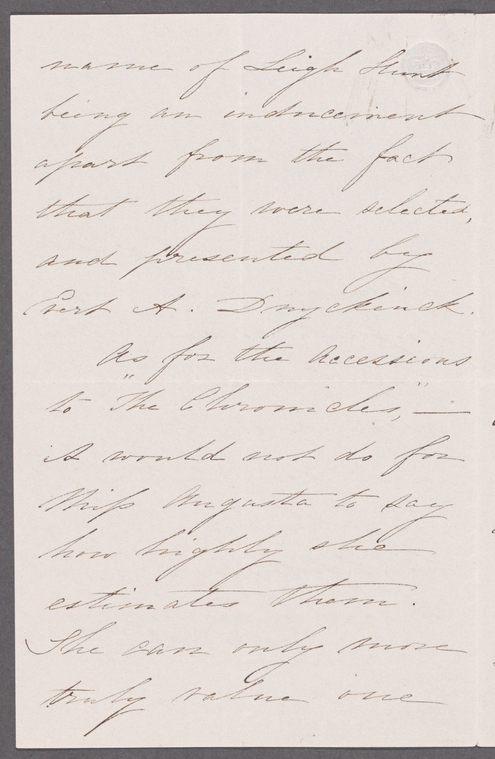 name of Leigh Hunt
being an inducement
apart from the fact
that they were selected,
and presented by
Evert A. Duyckinck.
As for the accessions
to "The Chronicles," —
it would not do for
Miss Augusta to say
how highly she
estimates them.
She can only more
truly value one